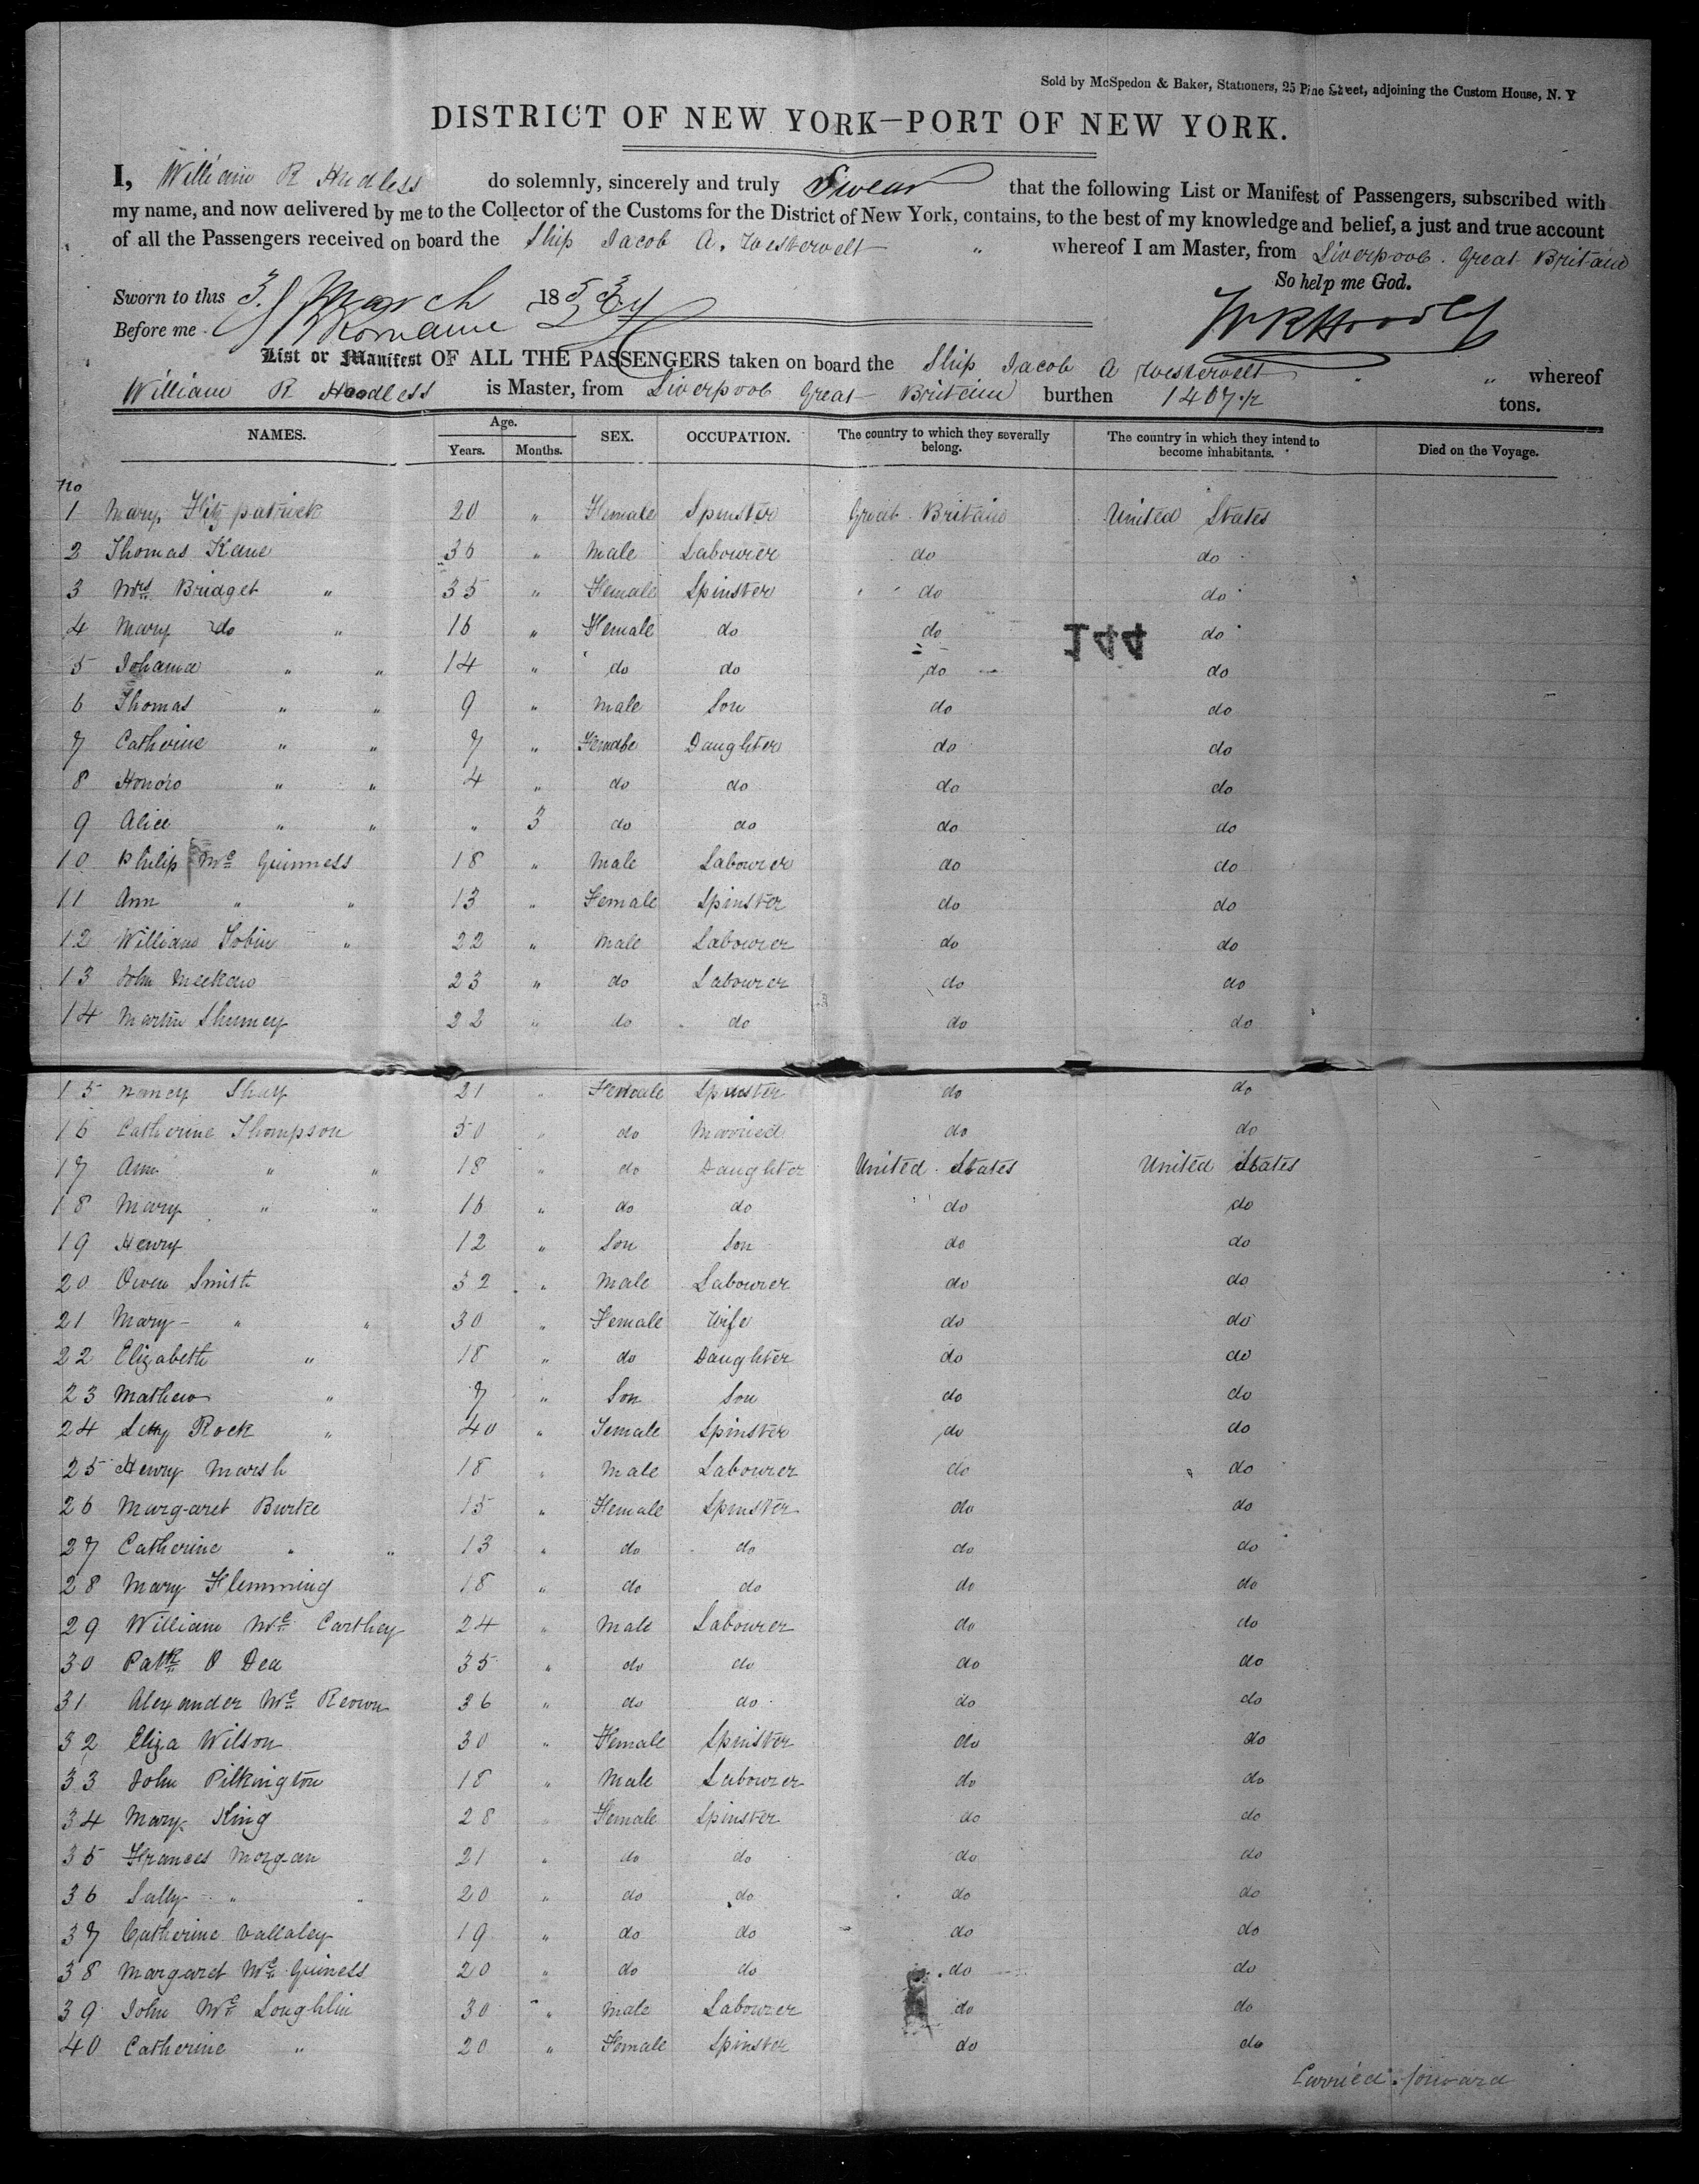 Sold by McSpedon & Baker, Stationers, 25 Pine Street, adjoining the Custom House, N. Y
DISTRICT OF NEW YORK—PORT OF NEW YORK.
I, William R Hoodless do solemnly, sincerely and truly Swear that the following List or Manifest of Passengers, subscribed with
my name, and now delivered by me to the Collector of the Customs for the District of New York, contains, to the best of my knowledge and belief, a just and true account
of all the Passengers received on board the Ship Jacob A. Westervelt " whereof I am Master, from Liverpool. Great Britain
So help me God.
Sworn to this 3. March 1853
Before me
List or Manifest OF ALL THE PASSENGERS taken on board the Ship Jacob A Westervelt " whereof
William R Hoodless is Master, from Liverpool Great Britain burthen 1407 tons.
NAMES. Age. Years. Months. SEX. OCCUPATION. The country to which they severally belong. The country in which they intend to become inhabitants. Died on the Voyage.
No
1 Mary Fitzpatrick 20 " Female Spinster Great Britain United States
2 Thomas Kane 36 " Male Labourer do do
3 Mrs Bridget " 35 " Female Spinster do do
4 Mary do " 16 " Female do do 144 do
5 Johana " " 14 " do do do do
6 Thomas " " 9 " Male Son do do
7 Catherine " " 7 " Female Daughter do do
8 Honoro " " 4 " do do do do
9 Alice " " " 3 do do do do
10 Philip Mc Guinness 18 " Male Labourer do do
11 Ann " " 13 " Female Spinster do do
12 William Tobin " 22 " Male Labourer do do
13 John 23 " do Labourer do do
14 Martin 22 " do do do do
15 Nancy Shay 21 " Female Spinster do do
16 Catherine Thompson 50 " do Married do do
17 Ann " " 18 " do Daughter United States United States
18 Mary " " 16 " do do do do
19 Henry 12 " Son Son do do
20 Owen Smith 32 " Male Labourer do do
21 Mary " " 30 " Female Wife do do
22 Elizabeth " 18 " do Daughter do do
23 Mathew " 7 " Son Son do do
24 Rock " 40 " Female Spinster do do
25 Henry Marsh 18 " Male Labourer do do
26 Margaret Burke 15 " Female Spinster do do
27 Catherine " " 13 " do do do do
28 Mary Flemming 18 " do do do do
29 William Mc Carthey 24 " Male Labourer do do
30 Patk O Dea 35 " do do do do
31 Alexander Mc Keown 36 " do do do do
32 Eliza Wilson 30 " Female Spinster do do
33 John Pilkington 18 " Male Labourer do do
34 Mary King 28 " Female Spinster do do
35 Frances Morgan 21 " do do do do
36 Sally " " 20 " do do do do
37 Catherine Vallaley 19 " do do do do
38 Margaret Mc Guiness 20 " do do do do
39 John Mc Loughlin 30 " Male Labourer do do
40 Catherine " 20 " Female Spinster do do
Carried forward